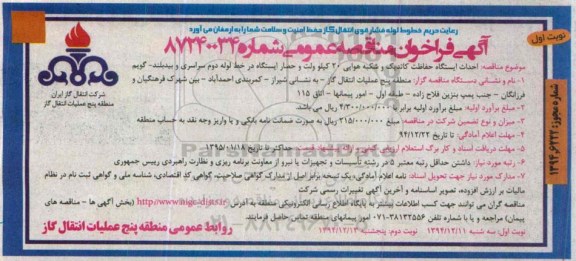 نوبت اول
رعایت حریم خطوط لوله فشار قوی انتقال گاز حفظ امنیت و سلامت شما را به ارمغان می آورد
آگهی فراخوان مناقصه عمومی شماره ۸۷۲۴۰۰۳۴
شرکت انتقال گاز ایران
منطقه پنج عملیات انتقال گاز
شماره مجوز: ۱۳۹۴.۶۲۲۲
موضوع مناقصه: احداث ایستگاه حفاظت کاتدیک و شبکه هوایی ۲۰ کیلو ولت و حصار ایستگاه در خط لوله دوم سراسری و بیدبلند- کویم
۱- نام و نشانی دستگاه مناقصه گزار: منطقه پنج عملیات انتقال گاز - به نشانی شیراز - کمربندی احمدآباد - بین شهرک فرهنگیان و
فرزانگان - جنب پمپ بنزین فلاح زاده - طبقه اول - امور پیمانها - اتاق ۱۱۵
۲- مبلغ برآورد اولیه: مبلغ برآورد اولیه برابر با ۴/۳۰۰/۰۰۰/۰۰۰ ریال می باشد.
۳- میزان و نوع تضمین شرکت در مناقصه: مبلغ ۲۱۵/۰۰۰/۰۰۰ ریال به صورت ضمانت نامه بانکی و یا واریز وجه نقد به حساب منطقه
۴- مهلت اعلام آمادگی: تا تاریخ ۹۴/۱۲/۲۲
۵- مهلت دریافت اسناد و کار برگ استعلام ارزیابی حداکثر تا تاریخ ۱۳۹۵/۰۱/۱۸
۶- رتبه مورد نیاز: داشتن حداقل رتبه معتبر ۵ در رشته تأسیسات و تجهیزات یا نیرو از معاونت برنامه ریزی و نظارت راهبردی رییس جمهوری
۷- مدارک مورد نیاز جهت تحویل اسناد: نامه اعلام آمادگی، یک نسخه برابر اصل از مدارک گواهی صلاحیت، گواهی کد اقتصادی، شناسه ملی و گواهی ثبت نام در نظام
مالیات بر ارزش افزوده، تصویر اساسنامه و آخرین آگهی تغییرات رسمی شرکت
مناقصه گران می توانند جهت کسب اطلاعات بیشتر به پایگاه اطلاع رسانی الکترونیکی منطقه به آدرس (بخش آگهی ها - مناقصه های
پیمان) مراجعه و یا با شماره تلفن ۳۸۱۳۲۵۵۶-۰۷۱ امور پیمانهای منطقه تماس حاصل فرمایند.
نوبت اول: سه شنبه ۱۳۹۴/۱۲/۱۱ نوبت دوم: پنجشنبه ۱۳۹۴/۱۲/۱۳
روابط عمومی منطقه پنج عملیات انتقال گاز